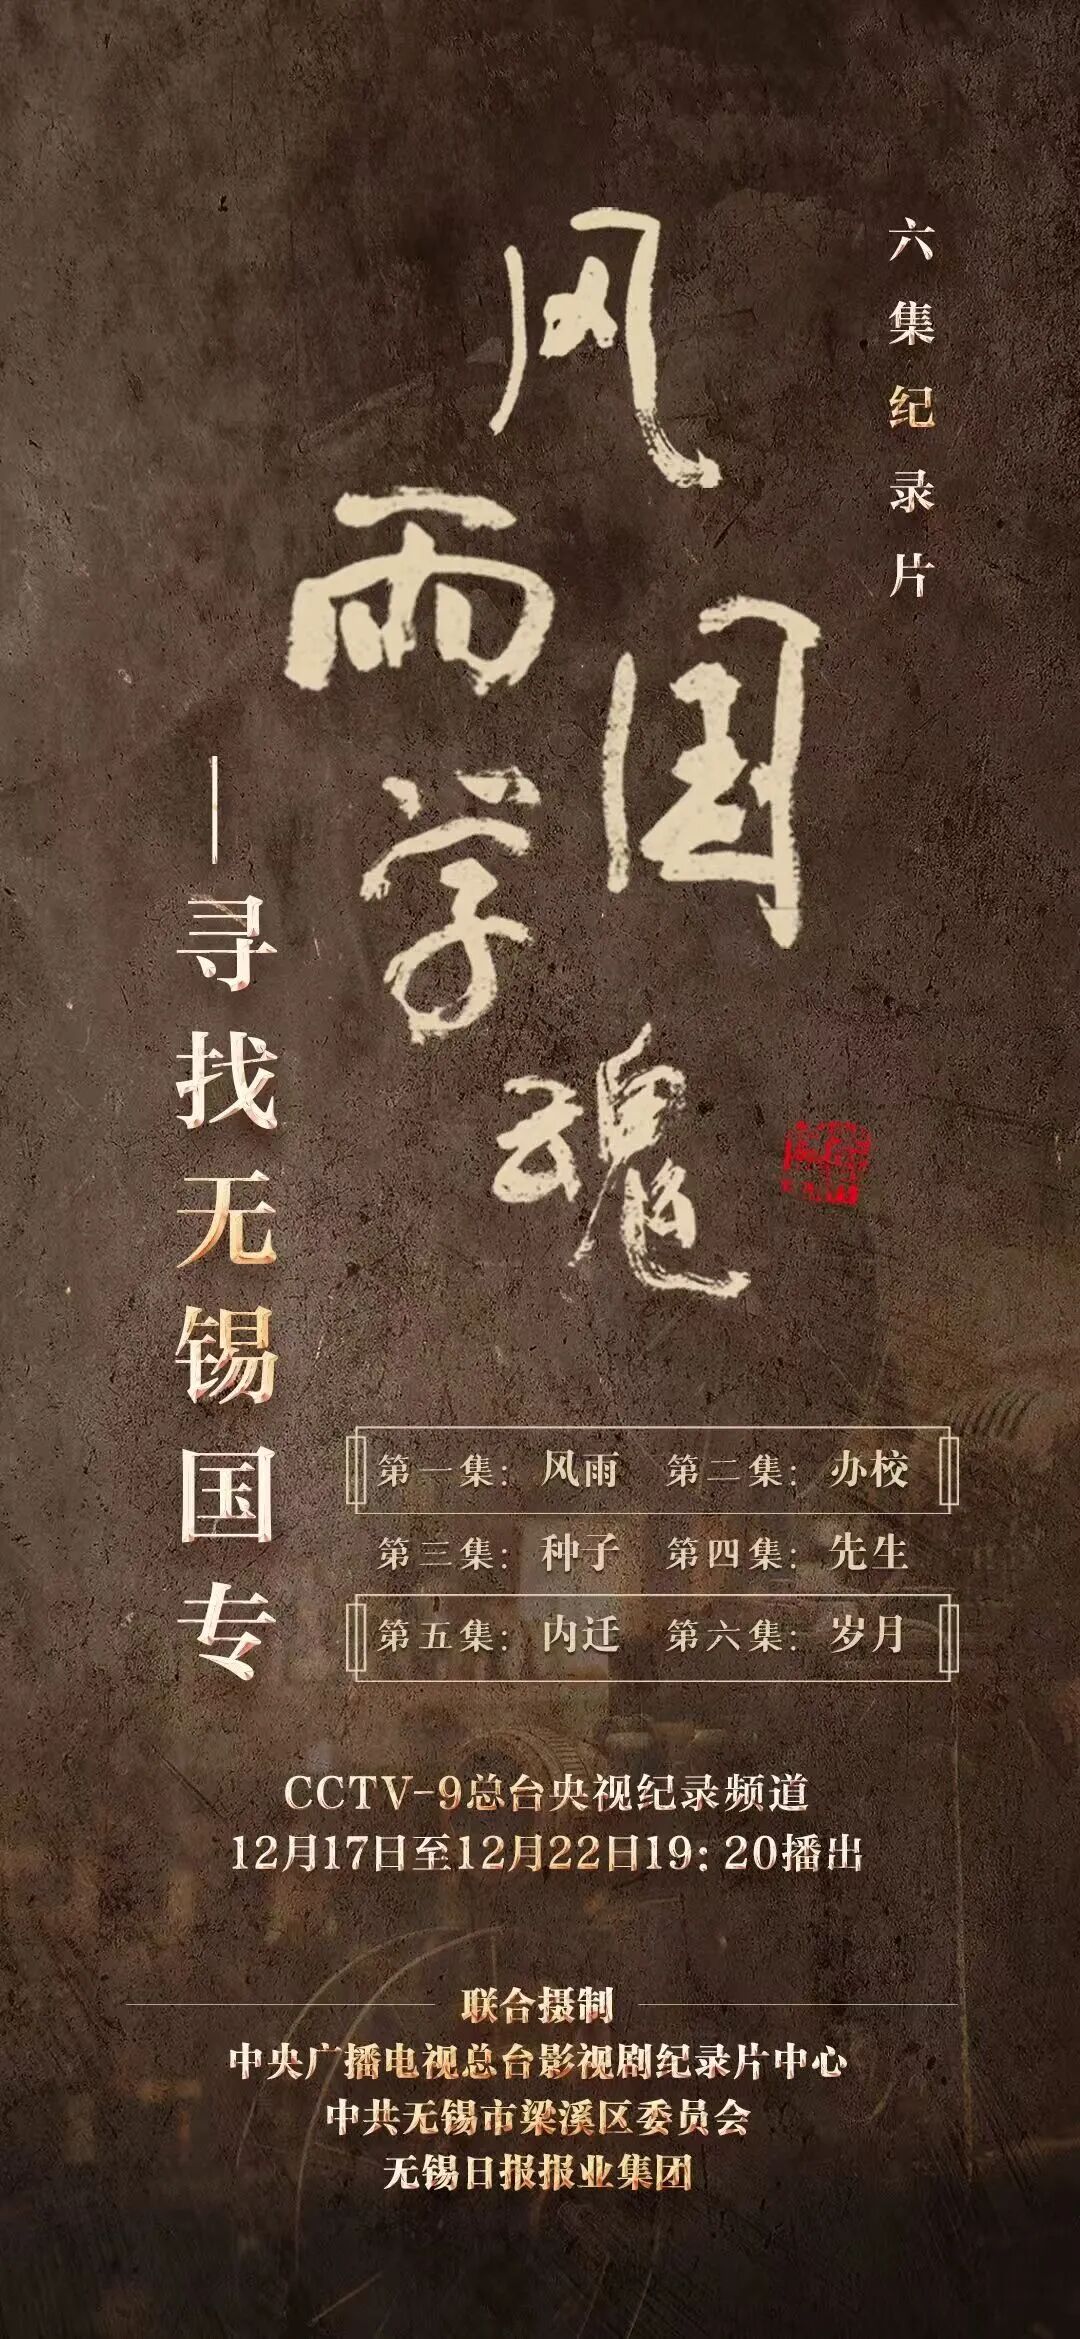 六集纪录片
风雨国学魂
——寻找无锡国专
第一集：风雨 第二集：办校
第三集：种子 第四集：先生
第五集：内迁 第六集：岁月
CCTV-9总台央视纪录频道
12月17日至12月22日19：20播出
联合摄制
中央广播电视总台影视剧纪录片中心
中共无锡市梁溪区委员会
无锡日报报业集团